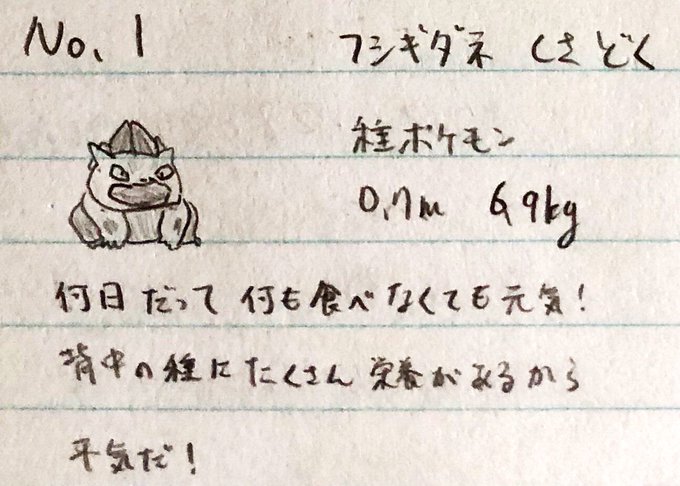 No. 1
フシギダネ くさ どく
種ポケモン
0.7m 6.9kg
何日だって 何も食べなくても元気!
背中の種にたくさん 栄養があるから
平気だ!